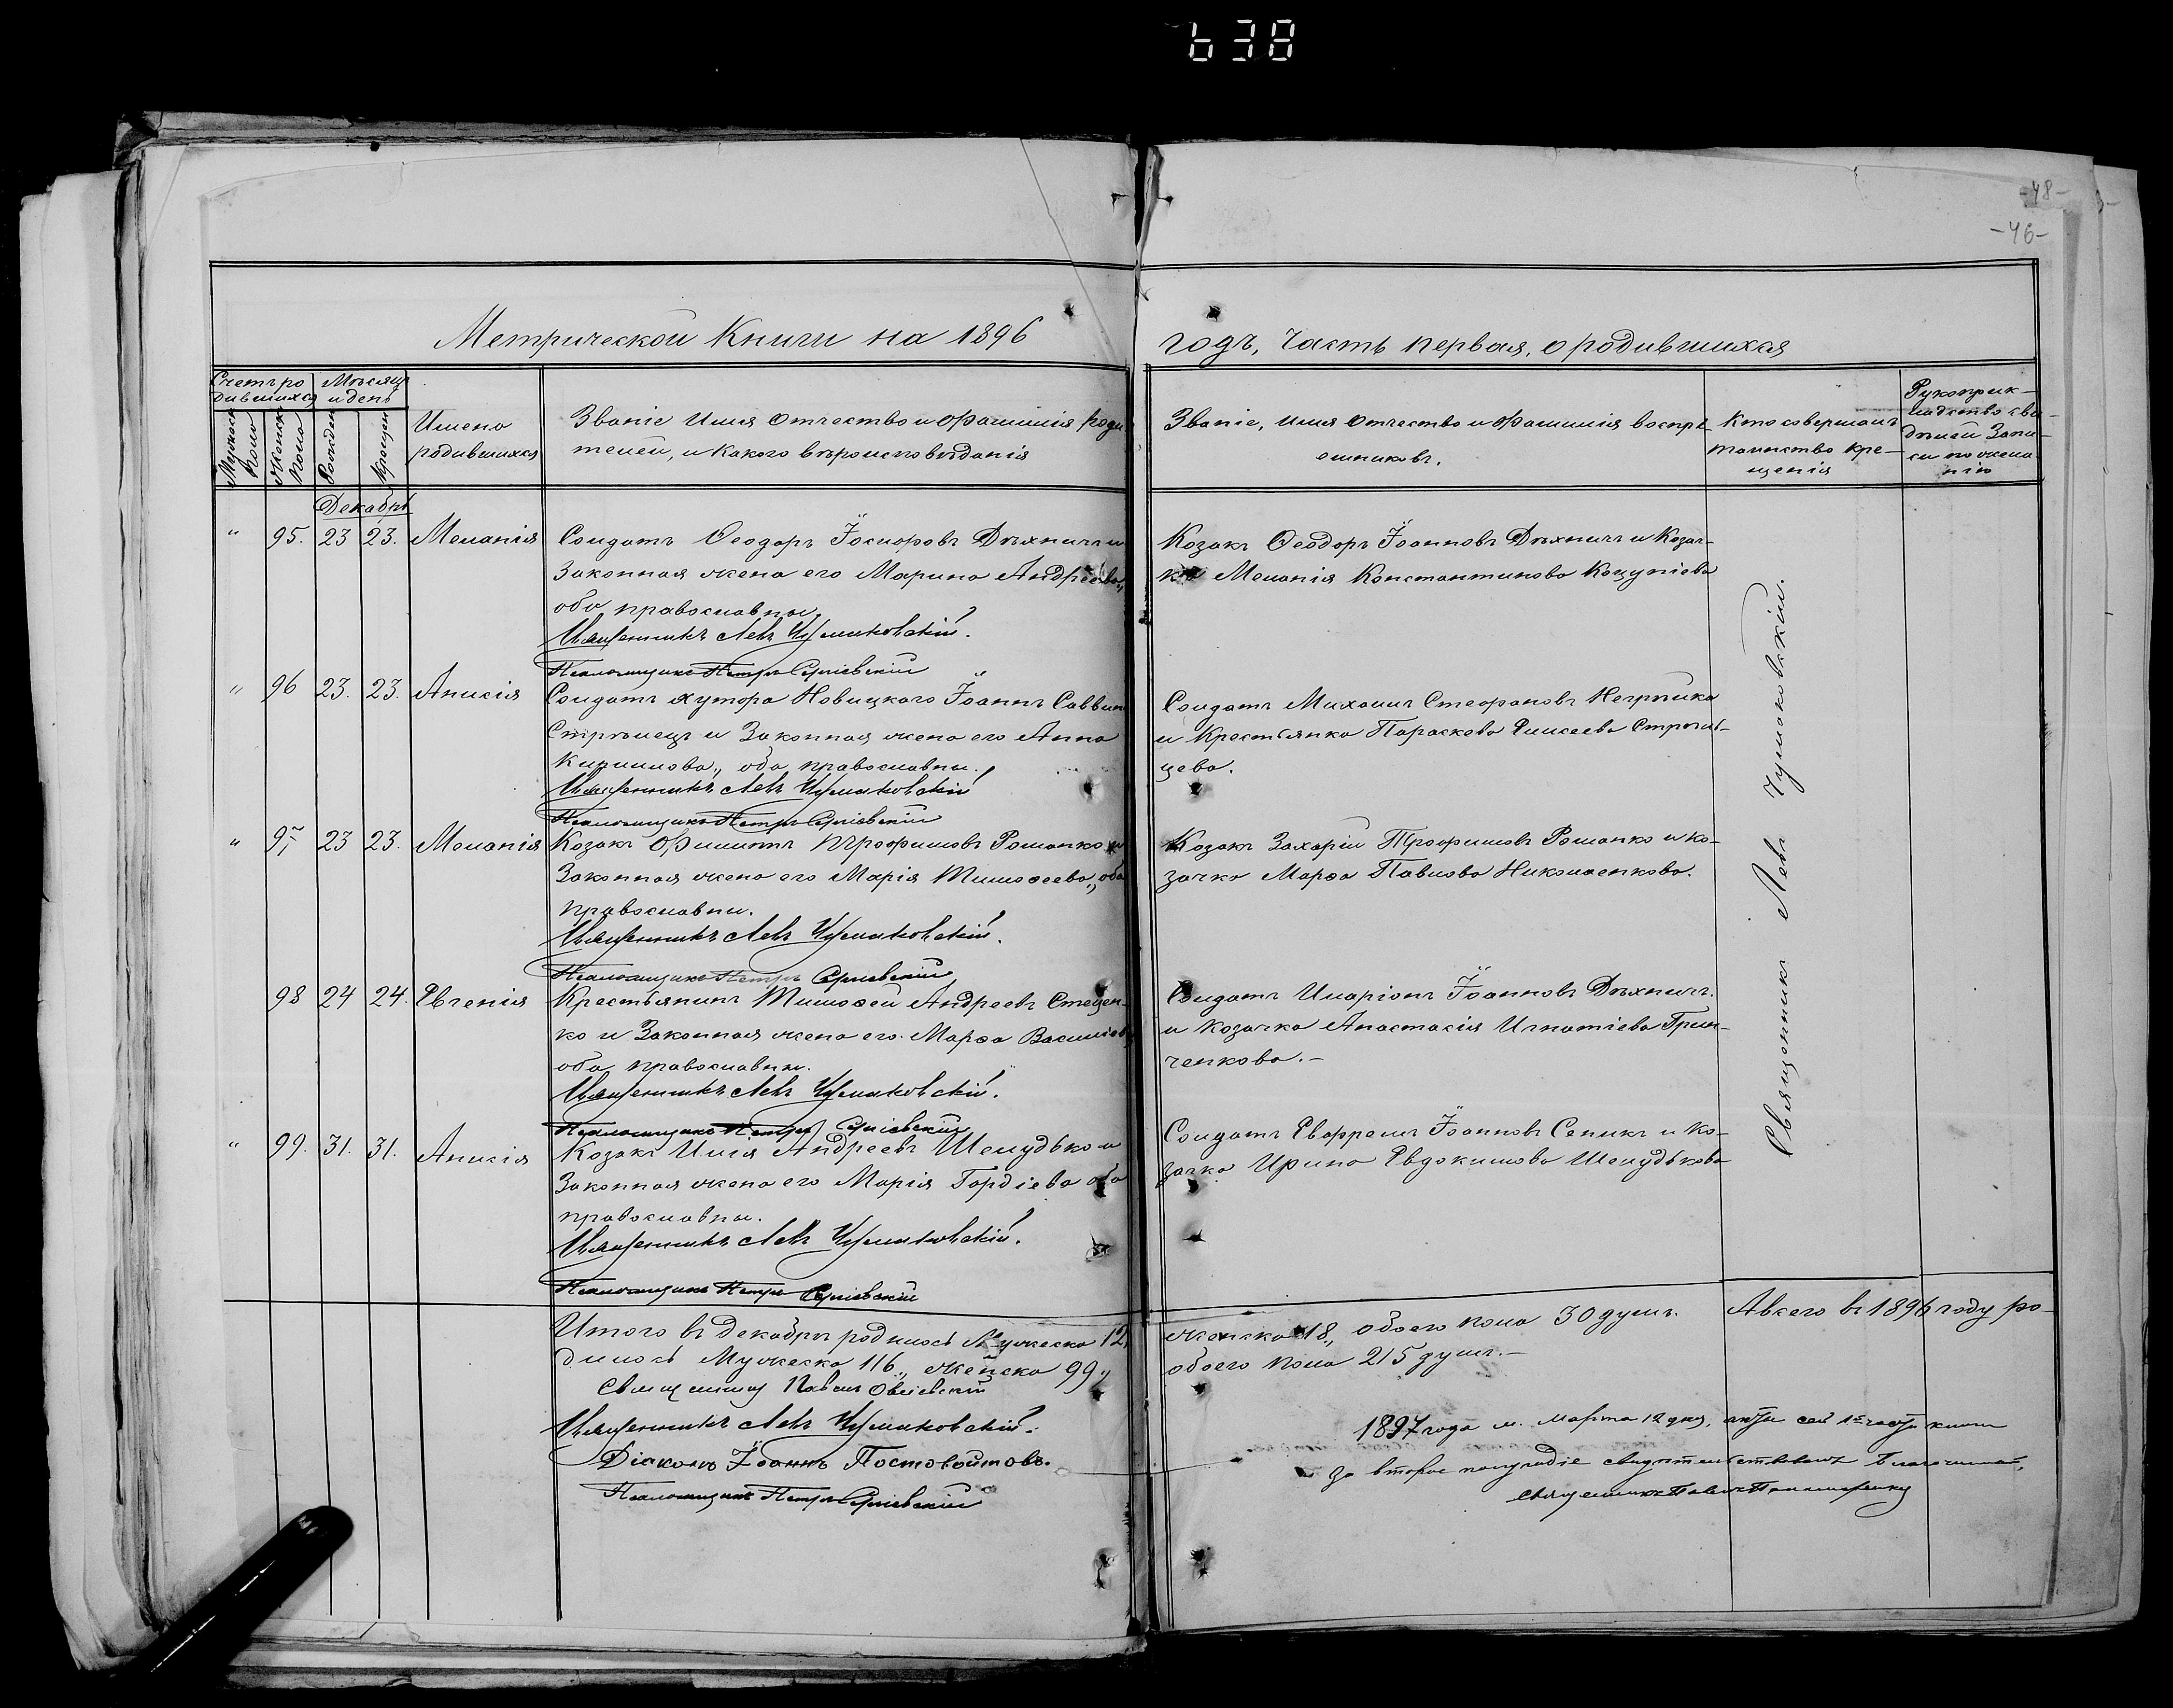 638
-48-
-46-
Метрической Книги на 1896
годъ, Часть первая, о родившихся
Счетъ ро
дившихся
Мѣсяцъ
и день
Мужеск
пола
Женск
пола
Рожден
Крещен
Имена
родившихся
Званіе Имя Отчество и Фамилія роди
телей, и какого вѣроисповѣданія
Званіе, имя Отчество и Фамилія воспрі
емниковъ.
Кто совершалъ
таинство кре-
щенія
Рукоприк-
ладство сви-
дѣтелей Запи-
си по жела-
нію
Декабрь
" 95. 23 23. Меланія
Солдатъ Ѳеодоръ Іосифовъ Дѣхничъ и
Законная жена его Марина Андреева,
оба православны.
Священникъ Левъ Чумаковскій.
Псаломщикъ Петръ Сергіевскій
Козакъ Ѳеодоръ Іоанновъ Дѣхничъ и Козач-
ка Меланія Константинова Коцупіева
" 96 23. 23. Анисія
Солдатъ хутора Новицкаго Іоаннъ Саввин
Стрѣлецъ и Законная жена его Анна
Кирилова, оба православны.
Священникъ Левъ Чумаковскій
Псаломщикъ Петръ Сергіевскій
Солдатъ Михаилъ Стефановъ
и Крестьянка Параскева Елисеева Стрѣль-
цева.
" 97 23 23. Меланія
Козакъ Филиппъ Трофимовъ Романко и
Законная жена его Марія Тимоѳеева, оба
православны.
Священникъ Левъ Чумаковскій.
Псаломщикъ Петръ Сергіевскій
Козакъ Захарій Трофимовъ Романко и ко-
зачка Марѳа Павлова Николаенкова.
98 24 24. Евгенія
Крестьянинъ Тимоѳей Андреевъ Стецен-
ко и Законная жена его Марѳа Василіев
оба православны.
Священникъ Левъ Чумаковскій.
Псаломщикъ Петръ Сергіевскій
Солдатъ Иларіонъ Іоанновъ Дѣхничъ.
и козачка Анастасія Игнатіева Грин-
ченкова.-
" 99. 31. 31. Анисія
Козакъ Илія Андреевъ Шелудько и
Законная жена его Марія Гордіева оба
православны.
Священникъ Левъ Чумаковскій.
Псаломщикъ Петръ Сергіевскій
Солдатъ Іоанновъ Сеникъ и ко-
зачка Ирина Евдокимова Шелудькова
Священникъ Левъ Чумаковскій.
Итого въ декабрѣ родилось Мужеска 12,
женска 18, обоего пола 30 душъ. А всего въ 1896 году ро-
дилось Мужеска 116, женска 99,
обоего пола 215 душъ.-
Священникъ Павелъ
Священникъ Левъ Чумаковскій.
Діаконъ Іоаннъ Постовойтовъ.
Псаломщикъ Петръ Сергіевскій
1897 года м. Марта 12 дня, сей 1й части книги
за второе полугодіе свидѣтельствовалъ Благочинный,
священникъ Павелъ